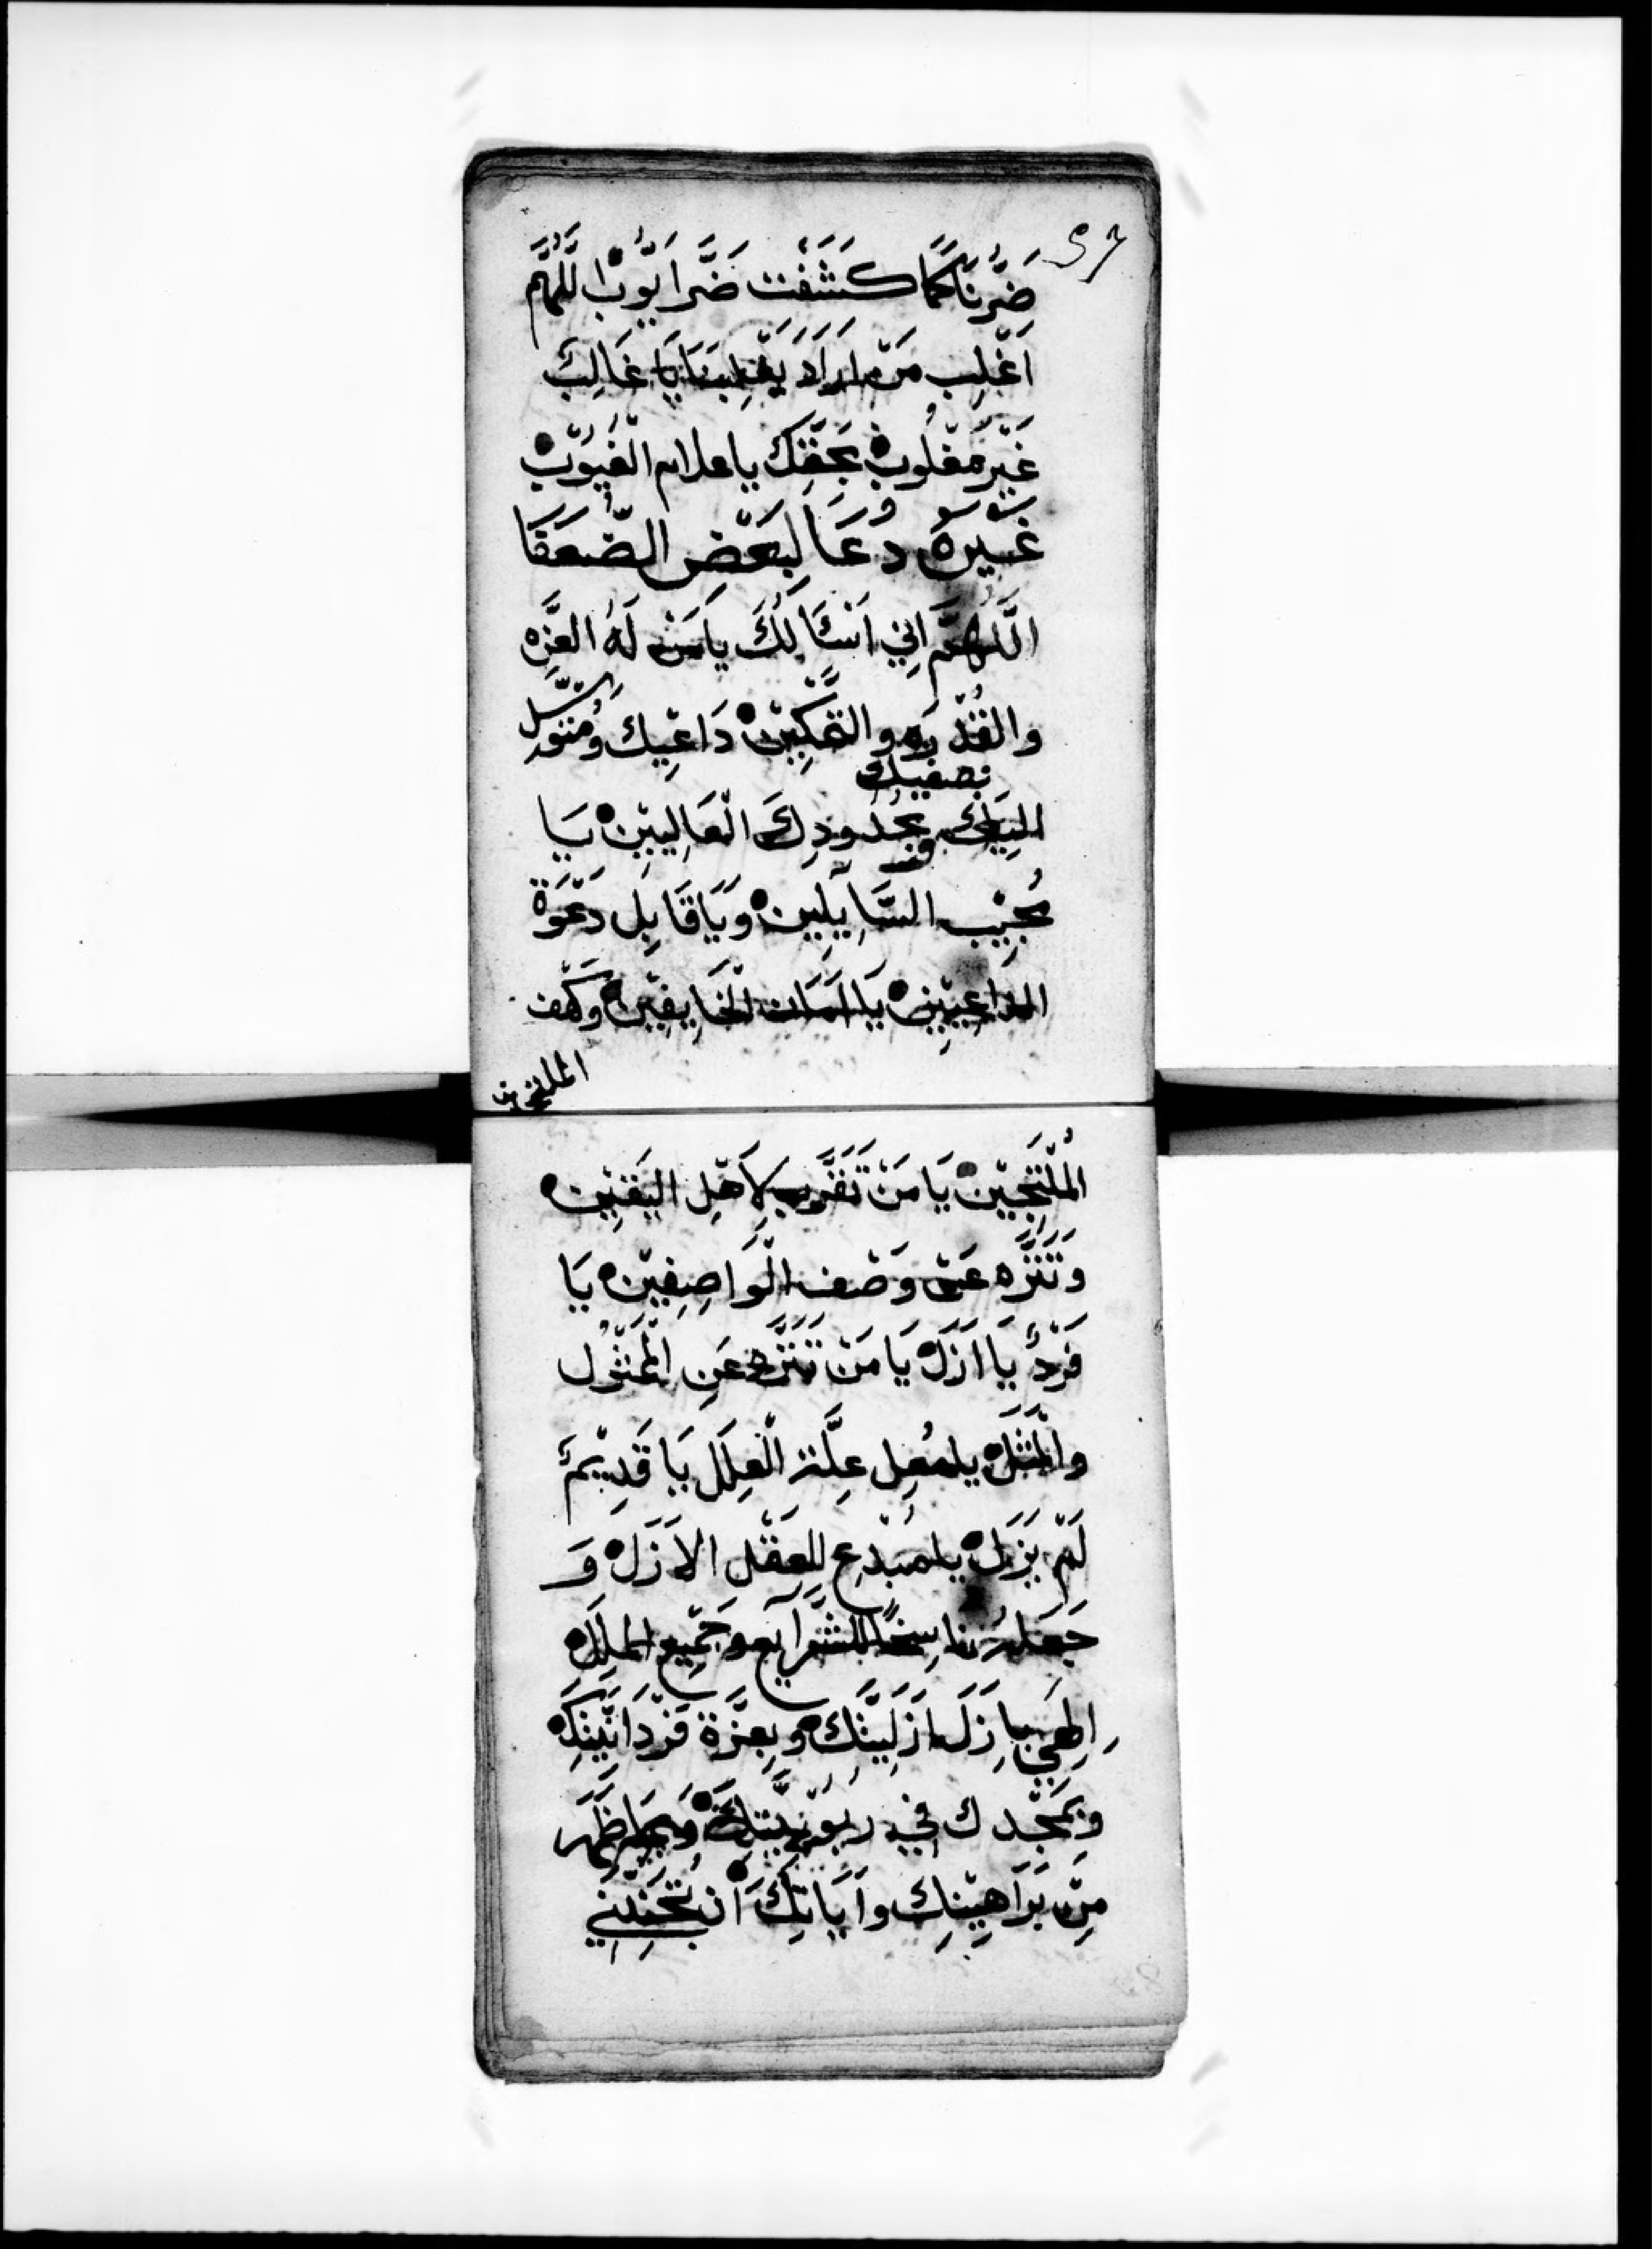 57
ضَرُّنَا كَمَا كَشَفْت ضَرَّ اَيُّوْب اللَّهُمَّ
اَغْلِب مَنْ اَرَادَ يَغْلِبَنَا يَا غَالِبَ
غَيْرَ مَغْلُوب بِحَقِّكَ يا علام الغُيُوْب
غَيره دُعَا لِبَعْضِ الضُّعَفَا
اللَّهُمَّ اِنِي اَسْئَالُكَ يا مَنْ لَهُ العِزَّه
والقُدْرَه والتَمْكِيْن دَاعِيْكَ وَمُتَوَسِّل
بصفيك
اِلَيْكَ وَبِحُدُودِكَ الْعَالِيِيْن يَا
مُجِيْب السَّايِلِيْن وَيَا قَابِل دَعْوَة
الداعِيِيْن يَا اَمَان الخَايِفِيْن وَكَهْف
الملتجين
المُلْتَجِيِيْن يَا مَنْ تَقَرَّب لِاَهْلِ اليَقِيْن
وَتَنَزَّه عَنْ وَصْف الْوَاصِفِيْن يَا
فَرْدُ يَا اَزَل يَا مَنْ تَنَزَّه عَنِ الْمَثُوْل
والْمَثَل يا مُعِل عِلَّت الْعِلَل يَا قَدِيْمَ
لَمْ يَزَل يا مُبْدِع لِلعَقْل الاَزَل وَ
جَعَلهُ ناسِخًا للشَّرَايع وجَمِيع الملَل
اِلهِي بِازَل اَزَلِيَّتك وبِعِزَّة فَرْدَانِيَّتِكَ
وَبِمَجْدك في رُبُوْبِيَّتِكَ وَبِمَا ظَهَر
مِنْ بَرَاهِيْنِك وآيَاتِكَ اَن تُنْجِيَنِي